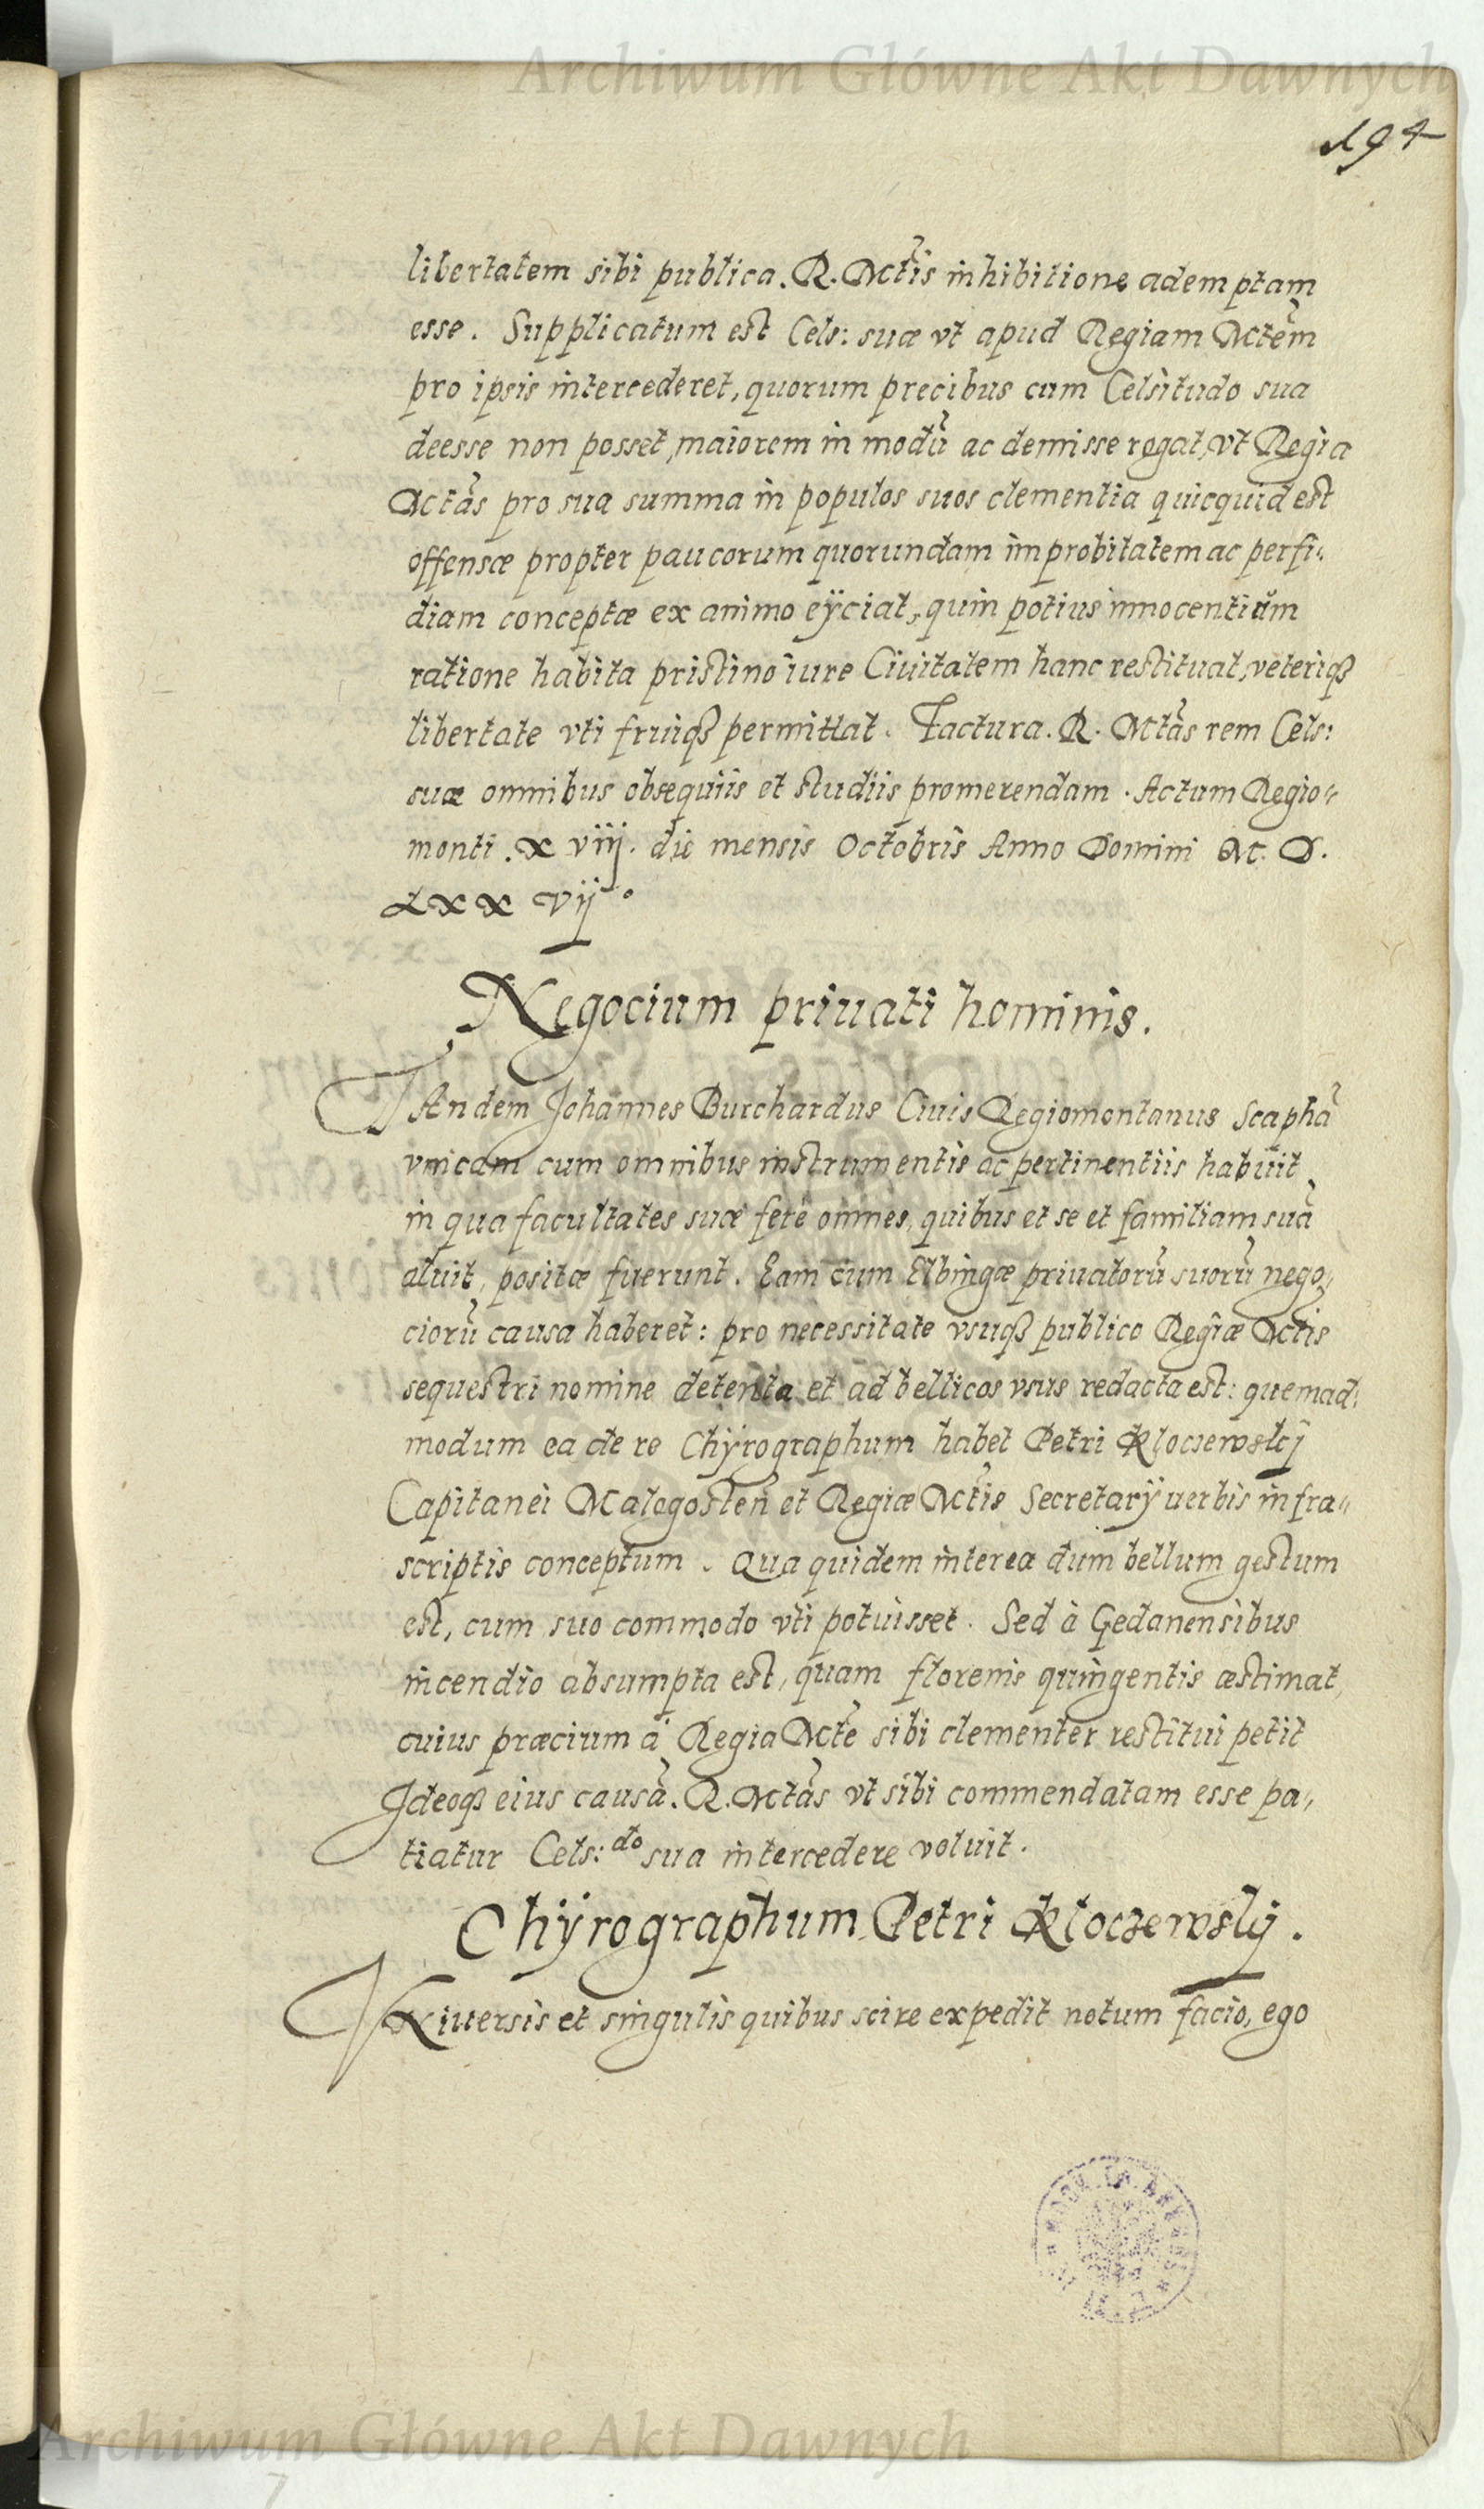 Archiwum Główne Akt Dawnych
194
libertatem sibi publica. R. Mctis inhibitione ademptam
esse. Supplicatum est Cels: suæ vt apud Regiam Mctem
pro ipsis intercederet, quorum precibus cum Celsitudo sua
deesse non posset, maiorem in modũ ac demisse rogat, vt Regia
Mctãs pro sua summa in populos suos clementia quicquid est
offensæ propter paucorum quorundam improbitatem ac perfi-
diam conceptæ ex animo eÿciat, quin potius innocentium
ratione habita pristino iure Ciuitatem hanc restituat, veteriqꝫ
libertate vti fruiqꝫ permittat. Factura. R. Mtãs rem Cels:
suæ omnibus obsequiis et studiis promerendam. Actum Regio-
monti. x viij. die mensis Octobris Anno Domini M. D.
Lxx vij°
Negocium priuati hominis.
TAndem Johannes Burchardus Ciuis Regiomontanus Scaphã
vnicam cum omnibus instrumentis ac pertinentiis habuit,
in qua facultates suæ ferè omnes, quibus et se et familiam suã
aluit, positæ fuerunt. Eam cum Elbingæ priuatorũ suorũ nego-
ciorũ causa haberet: pro necessitate vsuqꝫ publico Regiæ Mctis
sequestri nomine detenta et ad bellicos vsus redacta est: quemad-
modum ea de re Chÿrographum habet Petri Kloczewskij
Capitanei Malogosteñ et Regiæ Mctis Secretarÿ uerbis infra-
scriptis conceptum. Qua quidem interea dum bellum gestum
est, cum suo commodo vti potuisset. Sed à Gedanensibus
incendio absumpta est, quam florenis quingentis æstimat,
cuius præcium à Regia Mcte sibi clementer restitui petit
Jdeoqꝫ eius causã. R. Mctãs vt sibi commendatam esse pa-
tiatur Cels:do sua intercedere voluit.
Chÿrographum Petri Kloczewskÿ.
VNiuersis et singulis quibus scire expedit notum facio, ego
Archiwum Główne Akt Dawnych